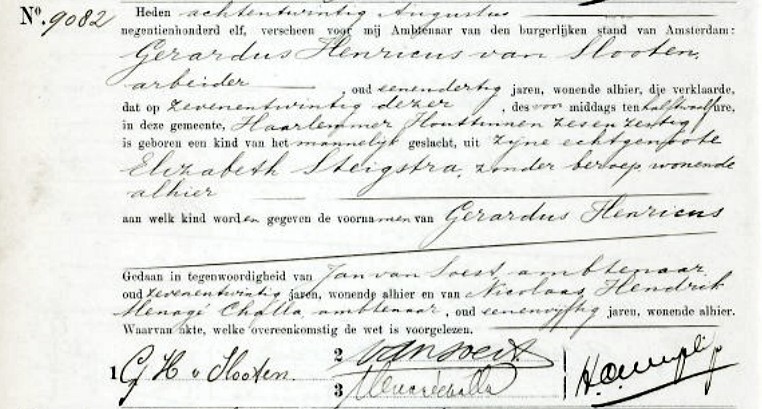 No. 9082
Heden achtentwintig Augustus
negentienhonderd elf, verscheen voor mij Ambtenaar van den burgerlijken stand van Amsterdam:
Gerardus Henricus van Slooten,
arbeider, oud eenendertig jaren, wonende alhier, die verklaarde,
dat op zevenentwintig dezer, des voor middags ten half twaalf ure,
in deze gemeente, Haarlemmer Houttuinen zesenzestig
is geboren een kind van het mannelijk geslacht, uit zijne echtgenoote
Elizabeth Steigstra, zonder beroep, wonende
alhier
aan welk kind worden gegeven de voornamen van Gerardus Henricus
Gedaan in tegenwoordigheid van Jan van Soest, ambtenaar,
oud zevenentwintig jaren, wonende alhier en van Nicolaas Hendrik
Menagé Challa, ambtenaar, oud eenenvijftig jaren, wonende alhier.
Waarvan akte, welke overeenkomstig de wet is voorgelezen.
1 G H v Slooten. 2 van Soest
3 Menagé Challa